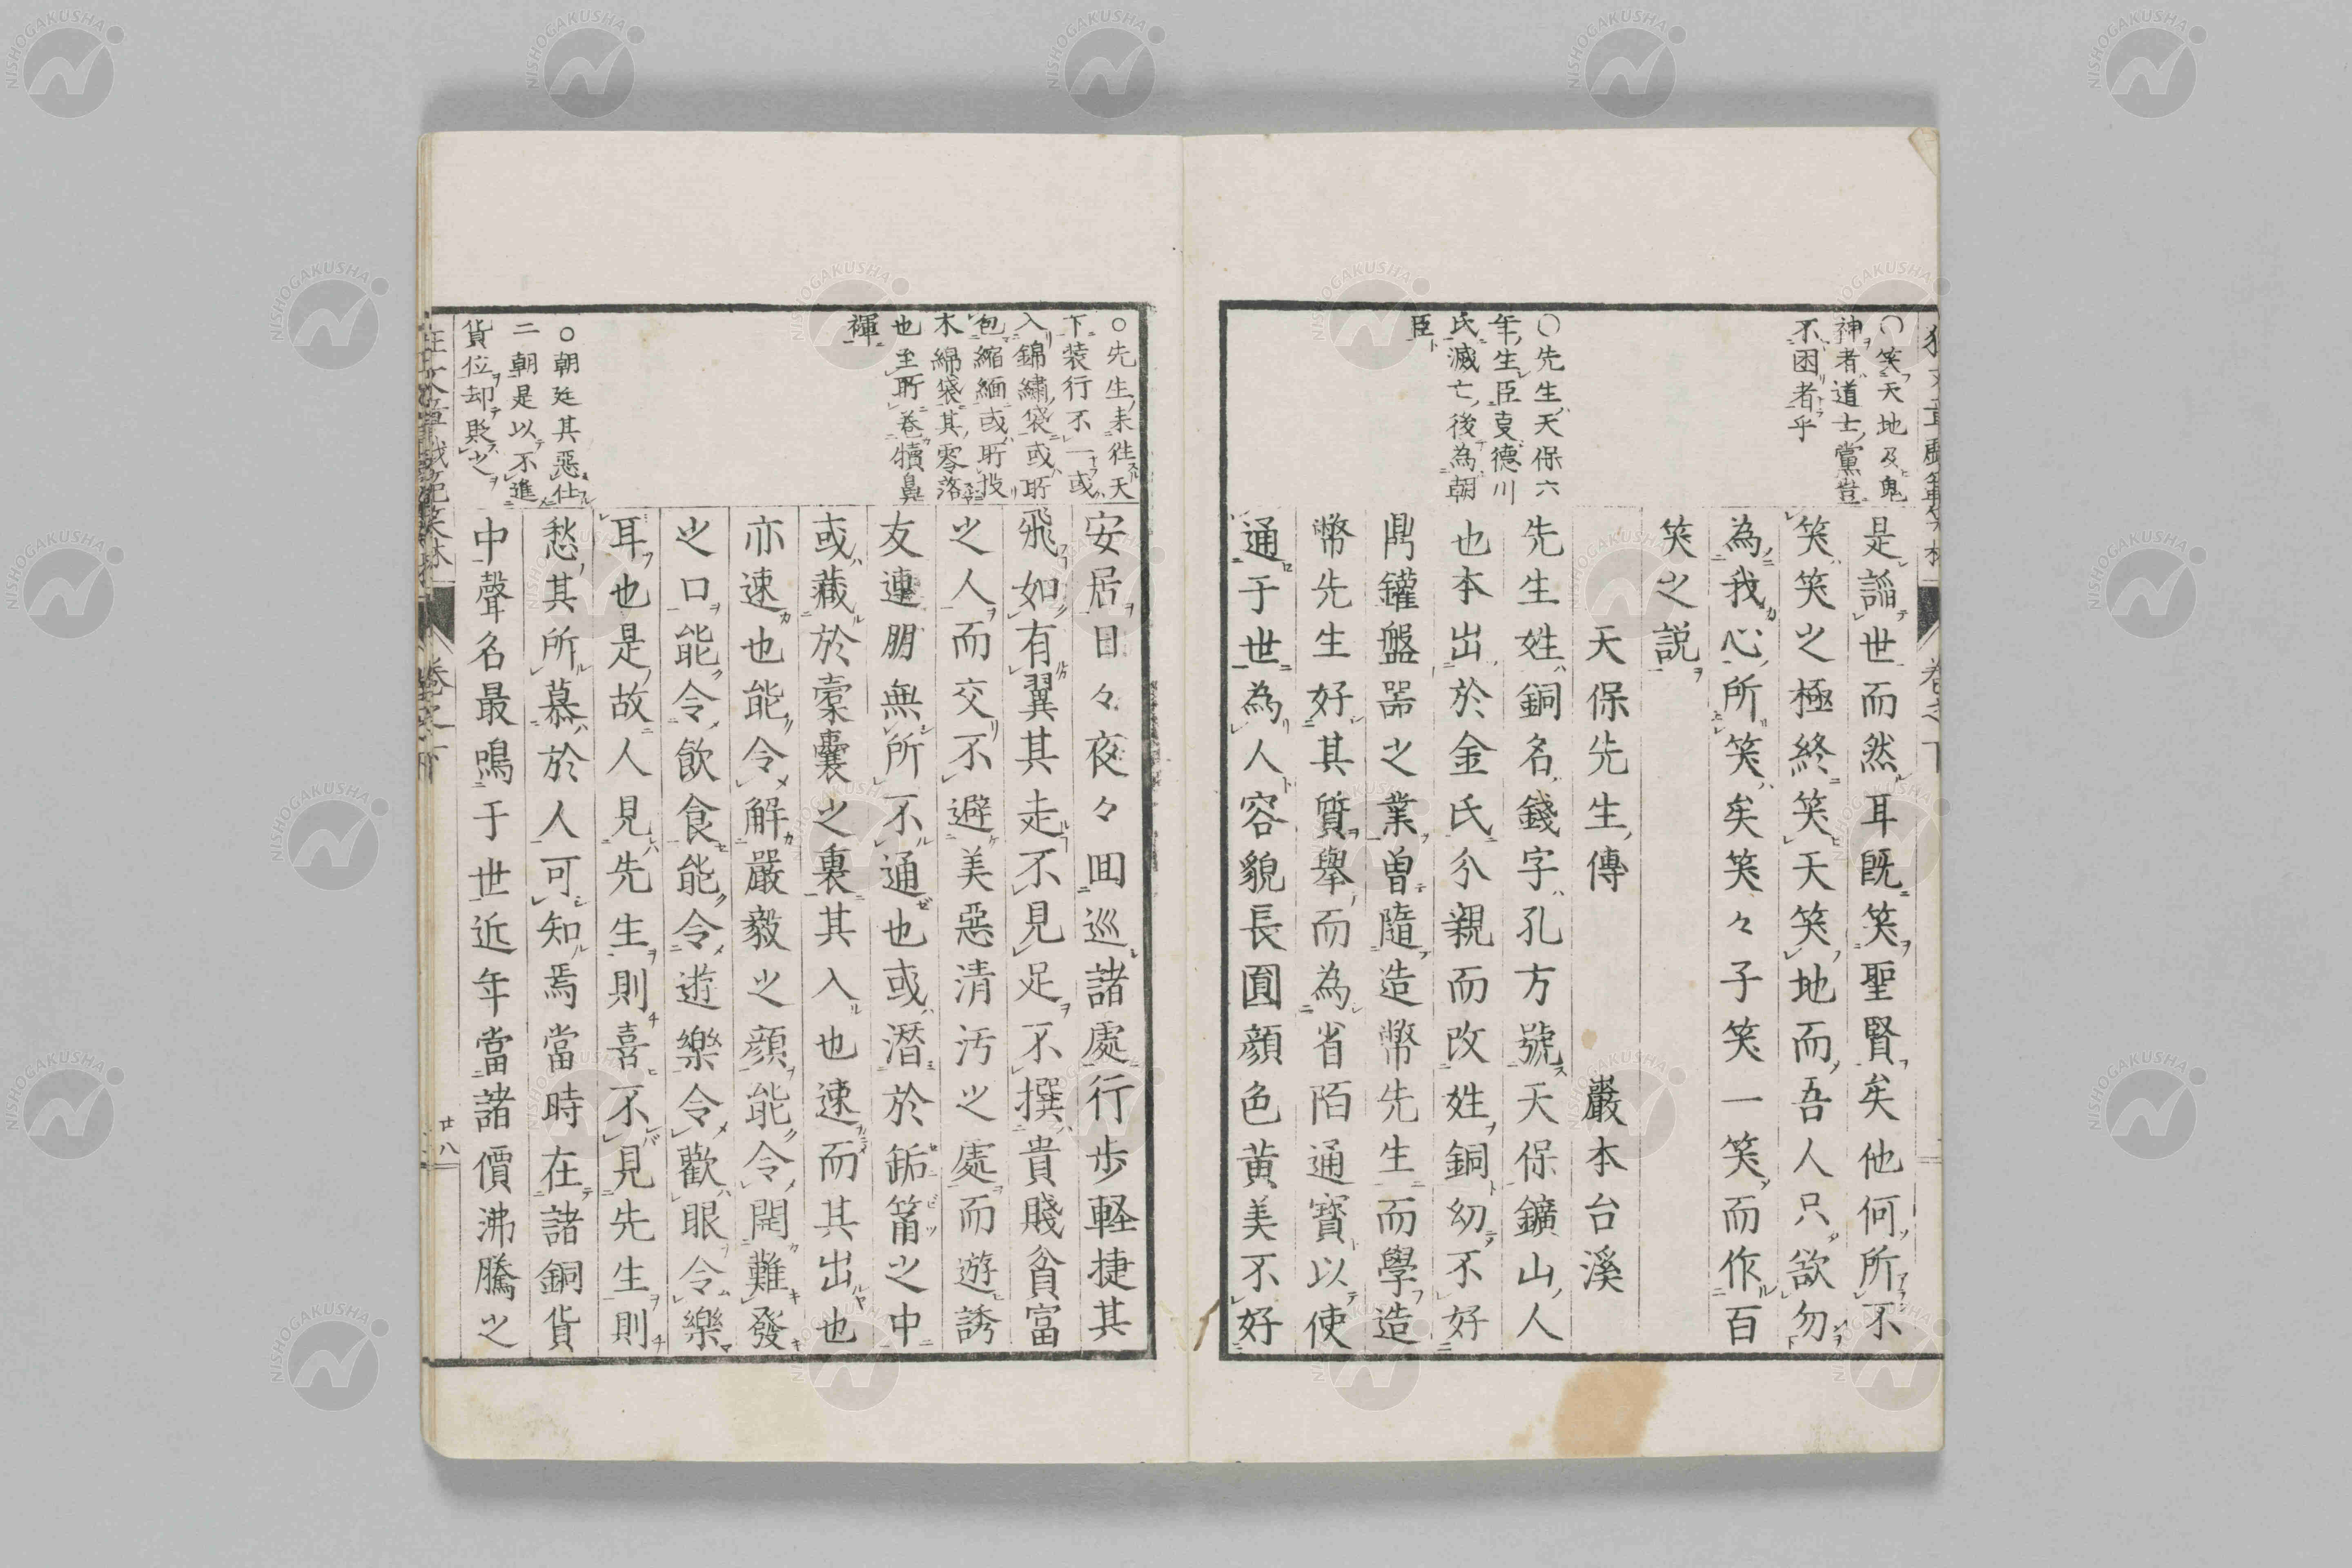 ○笑天地及鬼
神者道士黨豈
不困者乎
○先生天保六
年生臣叓德川
氏滅亡後為朝
臣
是謟世而然耳既笑聖賢矣他何所不
笑笑之極終笑天笑地而吾人只欲勿
為我心所笑矣笑々子笑一笑而作百
笑之說
天保先生傳 巖本台溪
先生姓銅名錢字孔方號天保鑛山人
也本出於金氏分親而改姓銅幼不好
鼎鑵盤噐之業曽隨造幣先生而學造
幣先生好其質舉而為省陌通寶以使
通于世為人容貌長圓顔色黃美不好
○先生来徃天
下装行不一或
入錦繡袋或所
包縮緬或所投
木綿袋其零落
也至所卷犢鼻
褌
○朝廷其惡仕
二朝是以不進
貨位却敗之
安居日々夜々囬巡諸處行步軽捷其
飛如有翼其走不見足不撰貴賤貧富
之人而交不避美惡清汚之處而遊誘
友連朋無所不通也或潛於缿筩之中
或藏於橐囊之裏其入也速而其出也
亦速也能令解嚴毅之顔能令開難發
之口能令飲食能令遊樂令歡眼令樂
耳也是故人見先生則喜不見先生則
愁其所慕於人可知焉當時在諸銅貨
中聲名最鳴于世近年當諸價沸騰之
卷之下
廿八
NISHOGAKUSHA